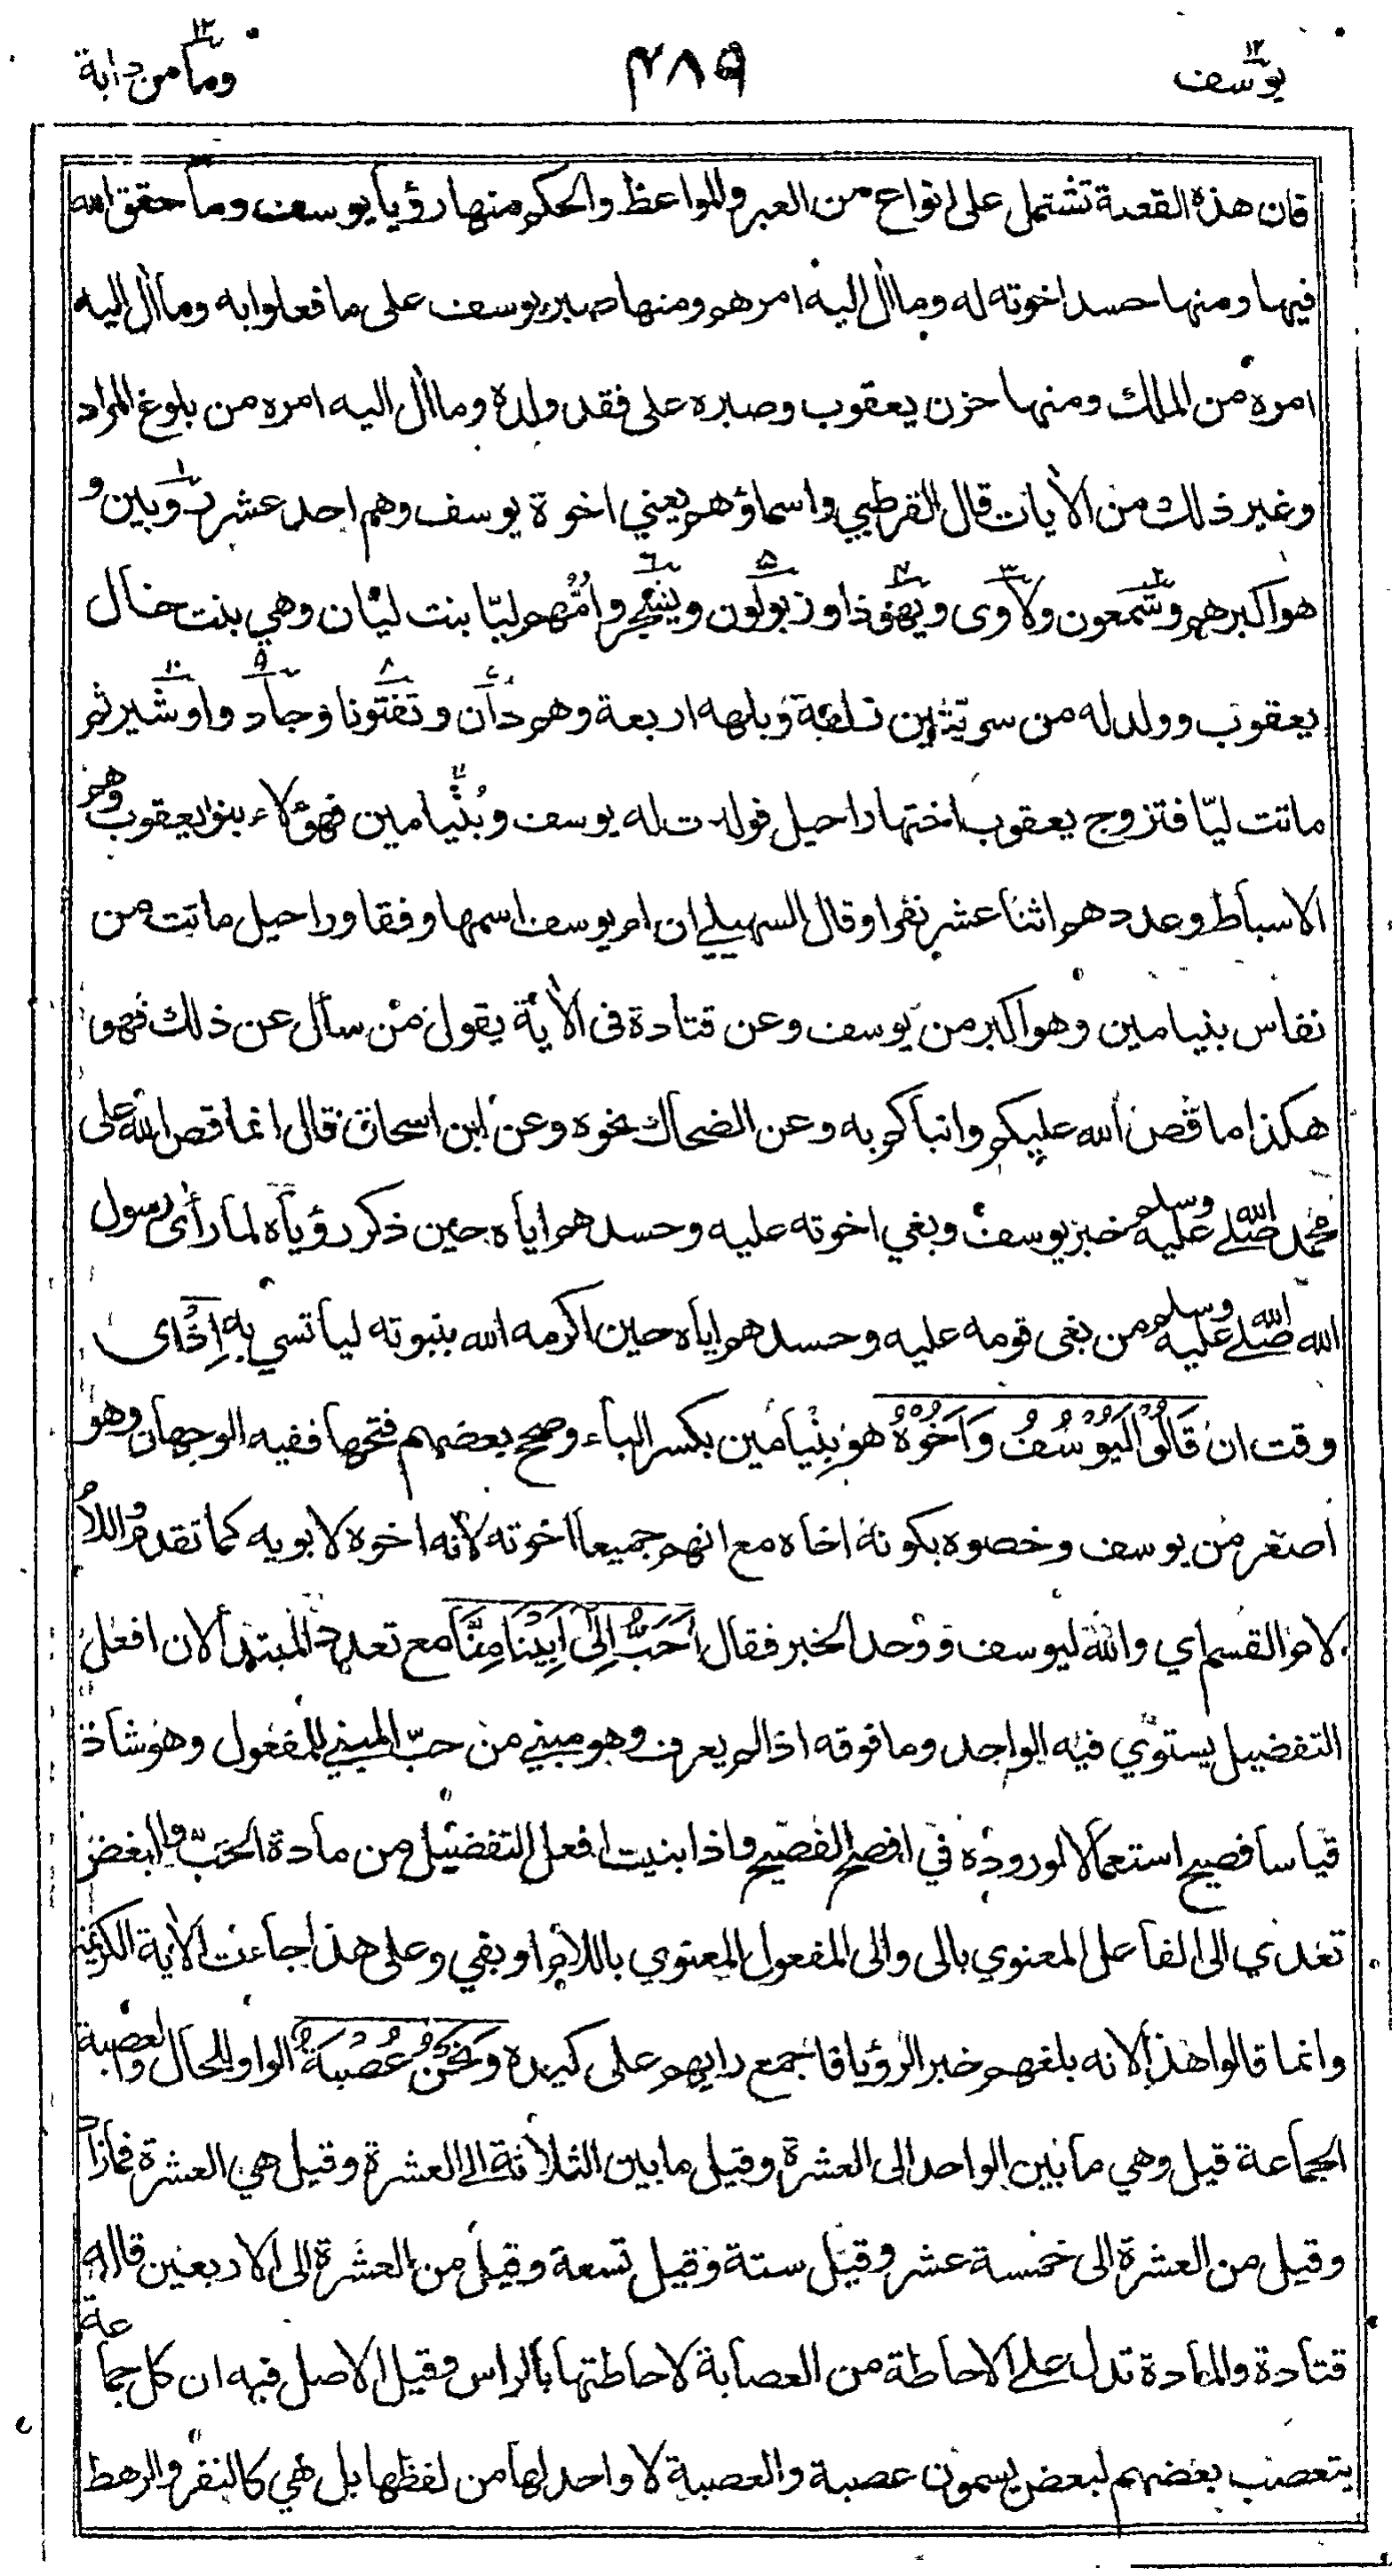 يوسف ١٢
٤٨٩
وما من دابة ١٢
فان هذه القصة تشتمل على انواع من العبر والمواعظ والحكم منها رؤيا يوسف وما حقق الله
فيها ومنها حسد اخوته له وما اٰل اليه امرهم ومنها صبر يوسف على ما فعلوا به وما اٰل اليه
امره من الملك ومنها حزن يعقوب وصبره على فقد ولده وما اٰل اليه امره من بلوغ المراد
وغير ذلك من الاٰيات قال القرطبي واسماؤهم يعني اخوة يوسف وهم احد عشر روبين و
هو اكبرهم وشمعون ولاوى ويهوذا وزبولون وينجر وامهم ليّا بنت ليان وهي بنت خال
يعقوب وولد له من سريتين زلفة وبلهه اربعة وهم دان وتفتونا وجاد واوشير ثم
ماتت ليّا فتزوج يعقوب اختها راحيل فولدت له يوسف وبنيامين فهؤلاء بنو يعقوب وهم
الاسباط وعددهم اثنا عشر نفرا وقال السهيلي ان ام يوسف اسمها وفقا وراحيل ماتت من
نفاس بنيامين وهو اكبر من يوسف وعن قتادة فى الاٰية يقول من سأل عن ذلك فهو
هكذا ما قص الله عليكم وانبأكم به وعن الضحاك نحوه وعن ابن اسحاق قال انما قص الله على
محمد صلى الله عليه وسلم خبر يوسف وبغي اخوته عليه وحسدهم اياه حين ذكر رؤياه لما رأى رسول
الله صلى الله عليه وسلم من بغى قومه عليه وحسدهم اياه حين اكرمه الله بنبوته ليأتسي به اِذْ اى
وقت ان قَالُوْا لَيُوْسُفُ وَاَخُوْهُ هو بِنْيامين بكسر الباء وصحح بعضهم فتحها ففيه الوجهان وهو
اصغر من يوسف وخصوه بكونه اخاه مع انهم جميعا اخوته لانه اخوه لابويه كما تقدم واللام
لام القسم اي والله ليوسف ووحد الخبر فقال اَحَبُّ اِلىٰ اَبِيْنَا مِنَّا مع تعدد المبتدأ لان افعل
التفضيل يستوي فيه الواحد وما فوقه اذا لم يعرف وهو مبني من حبّ المبني للمفعول وهو شاذ
قياسا فصيح استعمالا لوروده في افصح الفصيح واذا بنيت افعل التفضيل من مادة الحبّ والبغض
تعدي الى الفاعل المعنوي بالى والى المفعول المعنوي باللام او بفي وعلى هذا جاءت الاٰية الكريمة
وانما قالوا هذا لانه بلغهم خبر الرؤيا فاجمع رايهم على كيده وَنَحْنُ عُصْبَةٌ الواو للحال والعصبة
الجماعة قيل وهي ما بين الواحد الى العشرة وقيل ما بين الثلاثة الى العشرة وقيل هي العشرة فمازاد
وقيل من العشرة الى خمسة عشر وقيل ستة وقيل تسعة وقيل من العشرة الى الاربعين قاله
قتادة والمادة تدل على الاحاطة من العصابة لاحاطتها بالراس وقيل الاصل فيه ان كل جماعة
يتعصب بعضهم لبعض يسمون عصبة والعصبة لا واحد لها من لفظها بل هي كالنفر والرهط